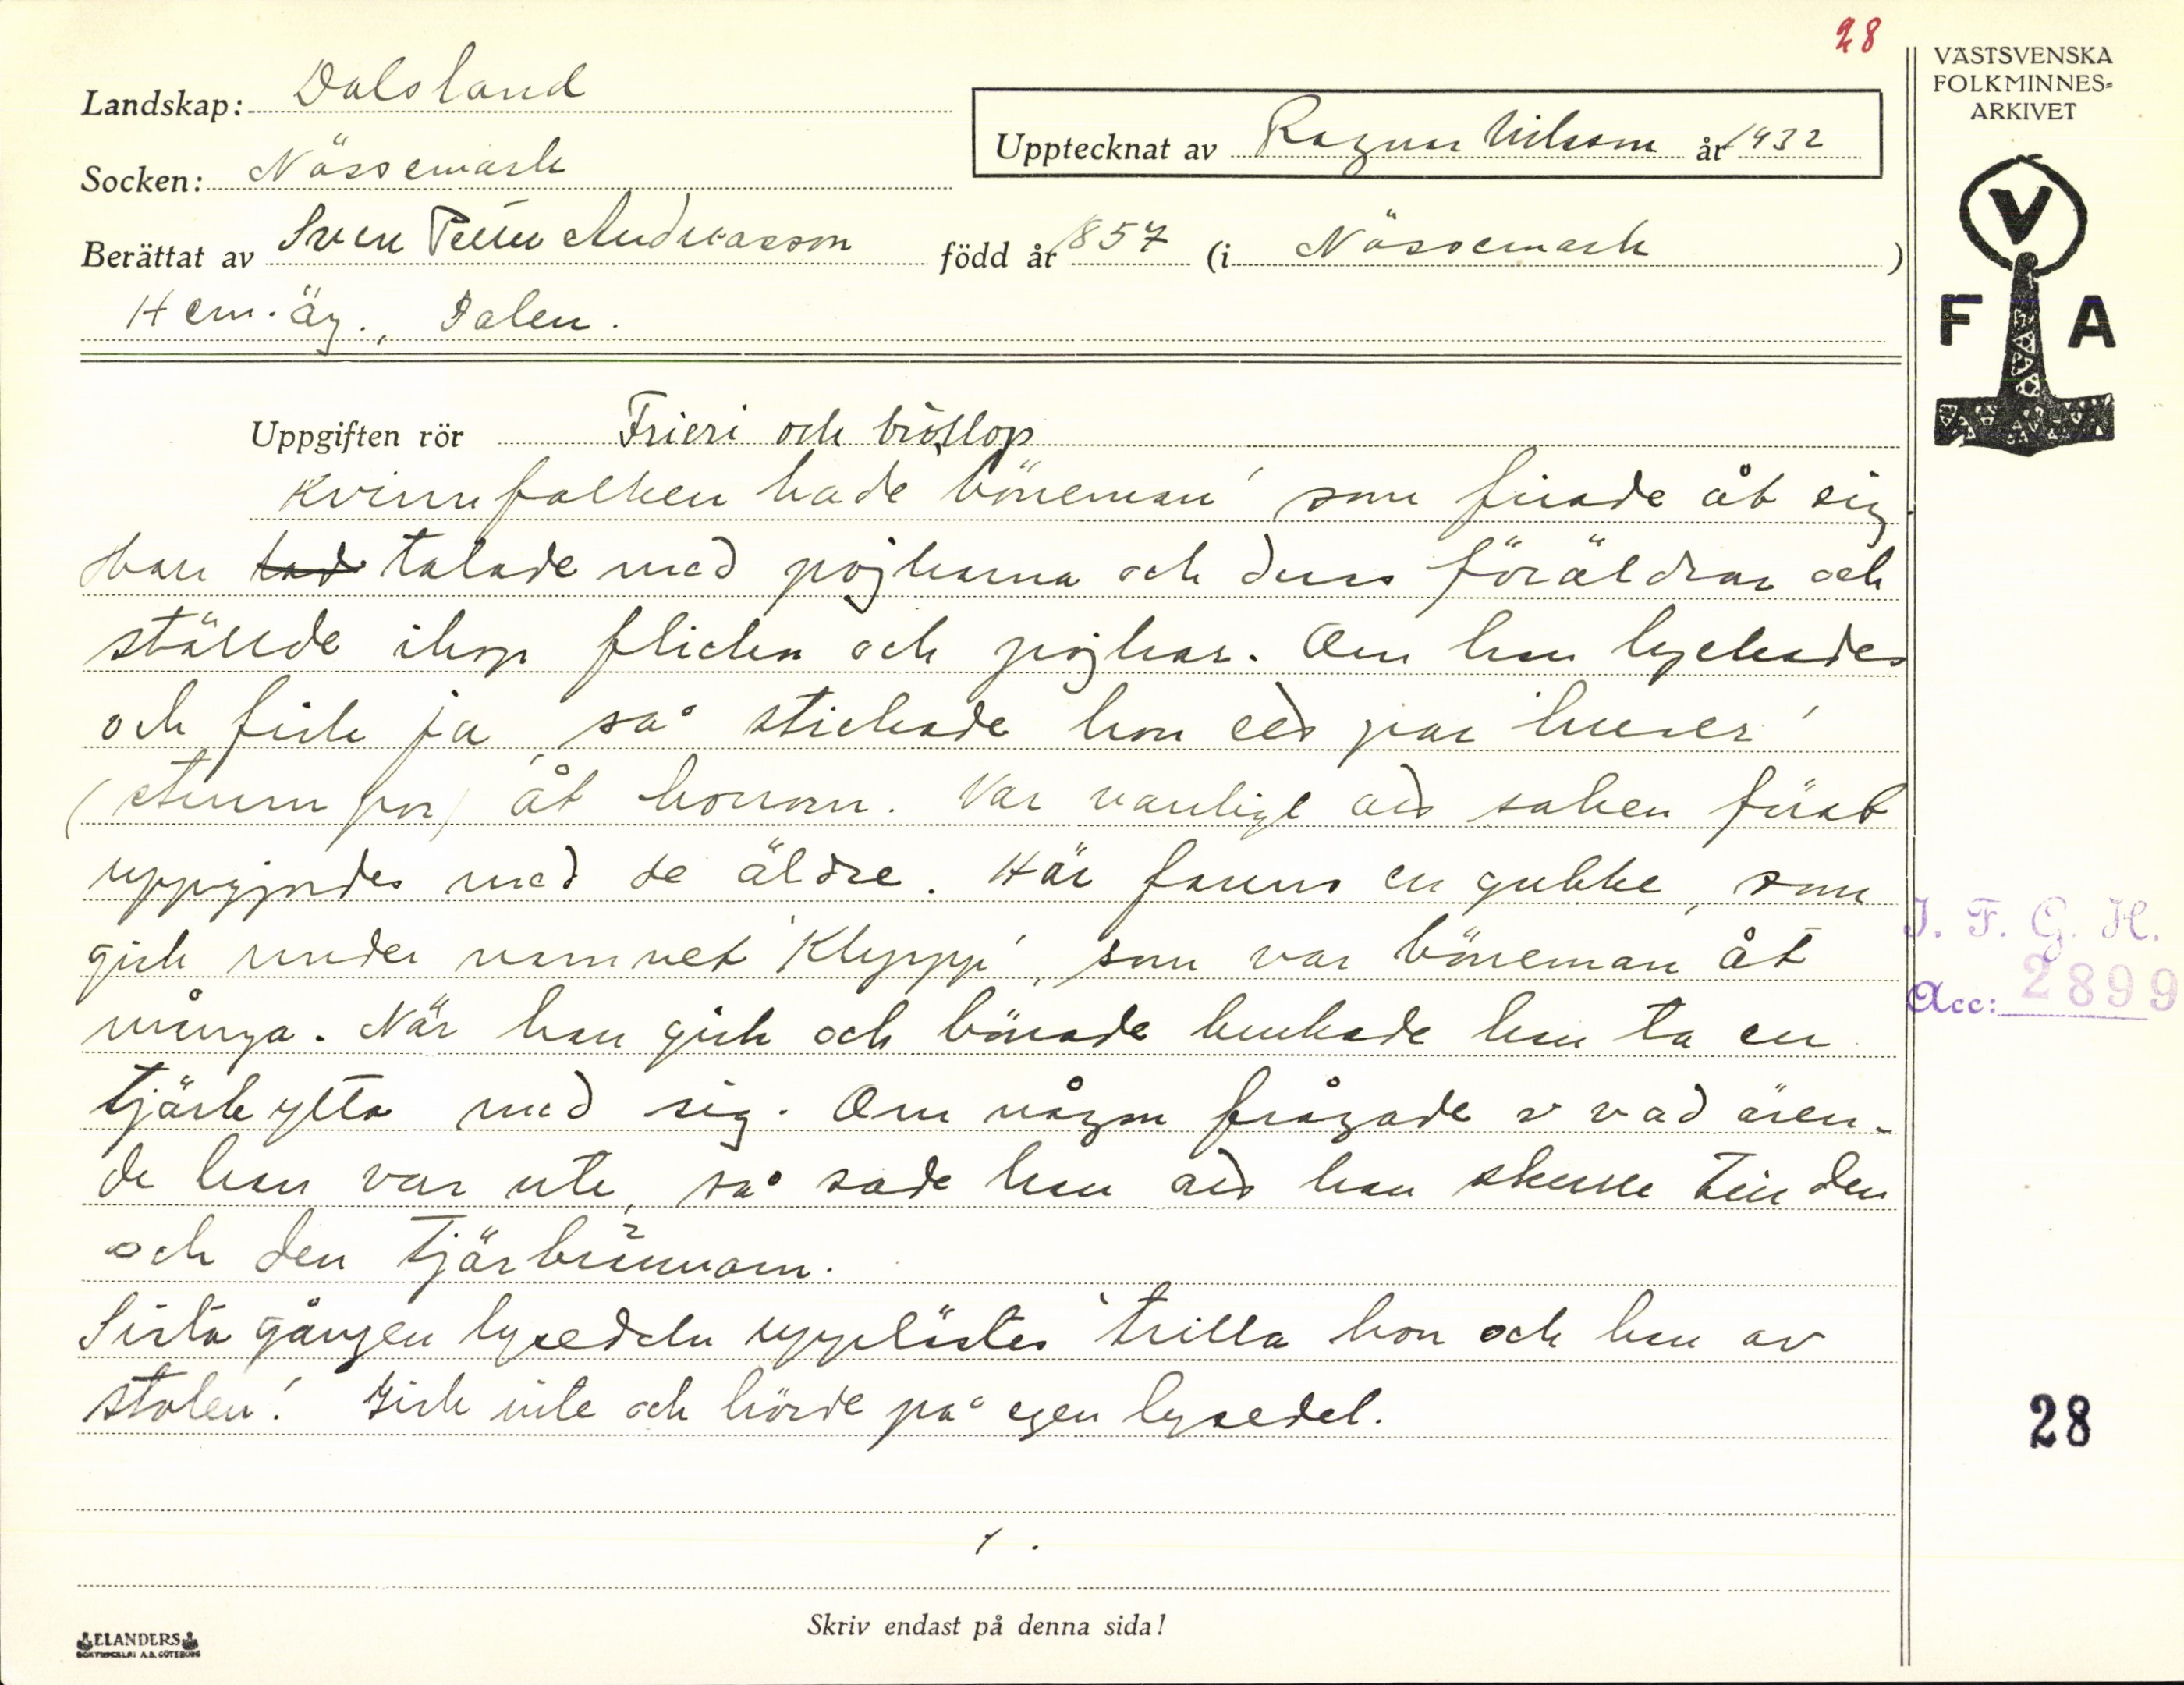 28
Landskap: Dalsland
Socken: Nössemark
Upptecknat av Ragnar Nilsson år 1932
Berättat av Sven Petter Andreasson född år 1857 (i Nössemark)
Hem.äg., Dalen.
VÄSTSVENSKA
FOLKMINNES-
ARKIVET
V
F A
Uppgiften rör Frieri och bröllop
Kvinnfolken hade 'böneman' som friade åt sig.
Han talade med pojkarna och deras föräldrar och
ställde ihop flickor och pojkar. Om han lyckades
och fick ja, så stickade hon ett par 'huser'
(strumpor) åt honom. Var vanligt att saken först
uppgjordes med de äldre. Här fanns en gubbe, som
gick under namnet 'Klypp', som var böneman åt
många. När han gick och bönade brukade han ta en
tjärbytta med sig. Om någon frågade vad ären-
de han var ute, så sade han att han skulle till den
och den tjärbrännarn.
Sista gången lysedeln upplästes 'trilla hon och han av
stolen'. Gick inte och hörde på egen lysedel.
I. F. G. H.
Acc: 2899
28
Skriv endast på denna sida!
ELANDERS
BOKTRYCKERI A.B. GÖTEBORG